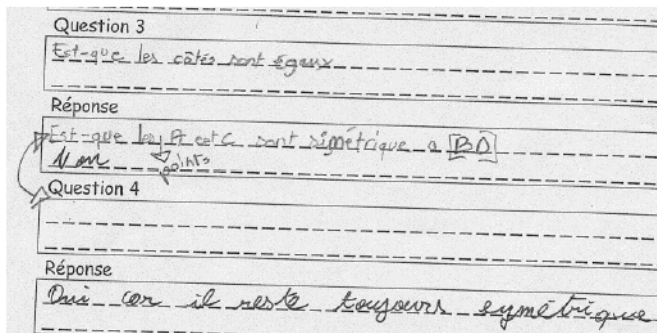 Question 3
Est-que les côtés sont égaux
Réponse
Est-que les A et C sont simétrique a [BD]
points
Non
Question 4
Réponse
Oui car il reste toujours symétrique